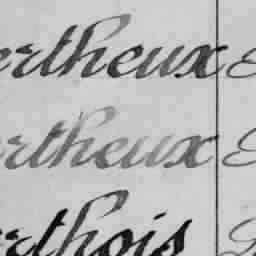 ertheux
ertheux
erthois